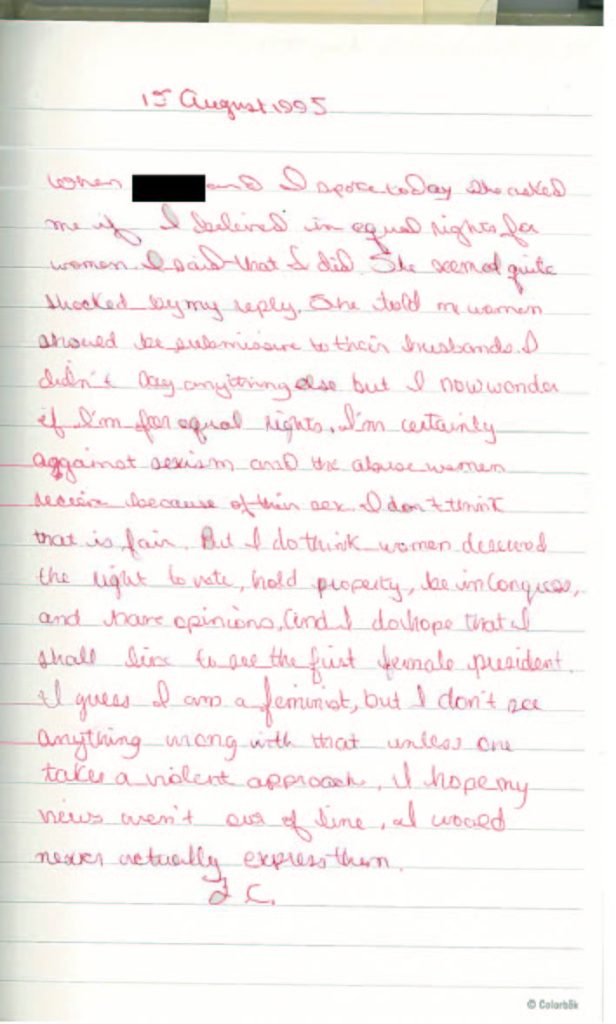 15 August 1995
When and I spoke today she asked
me if I believed in equal rights for
women. I said that I did. She seemed quite
shocked by my reply. She told me women
should be submissive to their husbands. I
didn't say anything else but I now wonder
if I'm for equal rights. I'm certainly
aggainst sexism and the abuse women
receive because of their sex. I don't think
that is fair. But I do think women deserved
the right to vote, hold property, be in Congress,
and have opinions, and I do hope that I
shall live to see the first female president.
I guess I am a feminist, but I don't see
anything wrong with that unless one
takes a violent approach. I hope my
views aren't out of line, I would
never actually express them.
C.
© Colorbök